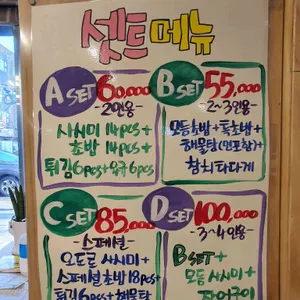 셋트메뉴
A SET 60,000
-2인용-
사시미 14pcs+
초밥 14pcs+
튀김6pcs+요구6pcs
B SET 55,000
-2~3인용-
모듬초밥+특초밥+
해물탕(연포탕)+
참치타다게
C SET 85,000
-스페셜-
오도로 사시미+
스페셜초밥18pcs+
튀김6pcs+해물탕
D SET 100,000
-3~4인용-
B SET+
모듬 사시미+